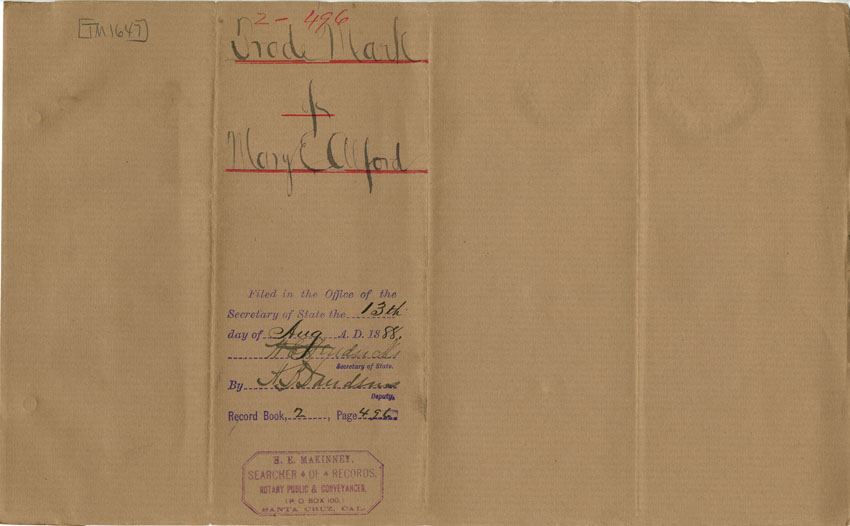 [TM1647]
2 - 496
Trade Mark
of
Mary E Alford
Filed in the Office of the
Secretary of State the 13th
day of Aug A. D. 1888.
W C Hendricks
Secretary of State.
By
Deputy.
Record Book, 2, Page 496
H. E. MAKINNEY,
SEARCHER OF RECORDS,
NOTARY PUBLIC & CONVEYANCER,
(P. O BOX 100.)
SANTA CRUZ, CAL.